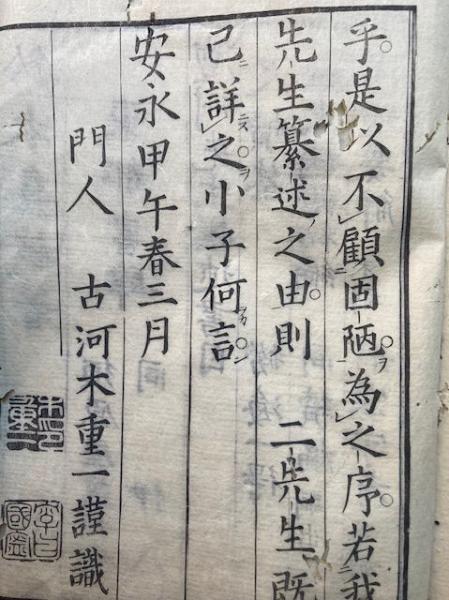 乎是以不顧固陋為之序若我
先生纂述之由則　二先生既
己詳之小子何言
安永甲午春三月
門人　古河木重一謹識